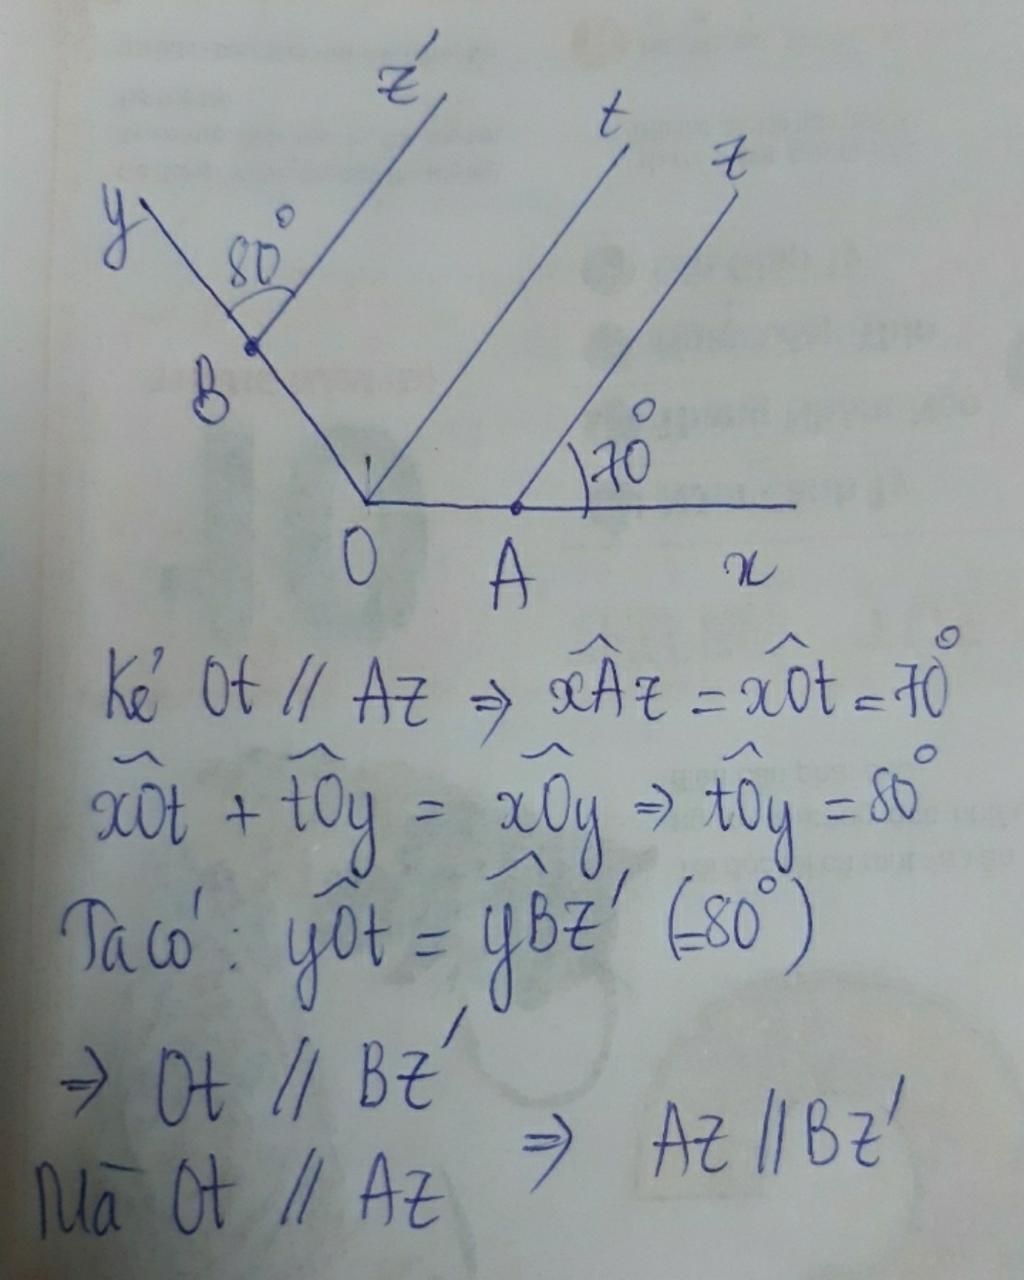 z'
t
z
y
80°
B
70°
O
A
x
Kẻ Ot // Az ⇒ x̂Az = x̂Ot = 70°
x̂Ot + t̂Oy = x̂Oy ⇒ t̂Oy = 80°
Ta có: ŷOt = ŷBz' (=80°)
⇒ Ot // Bz'
⇒ Az // Bz'
Mà Ot // Az